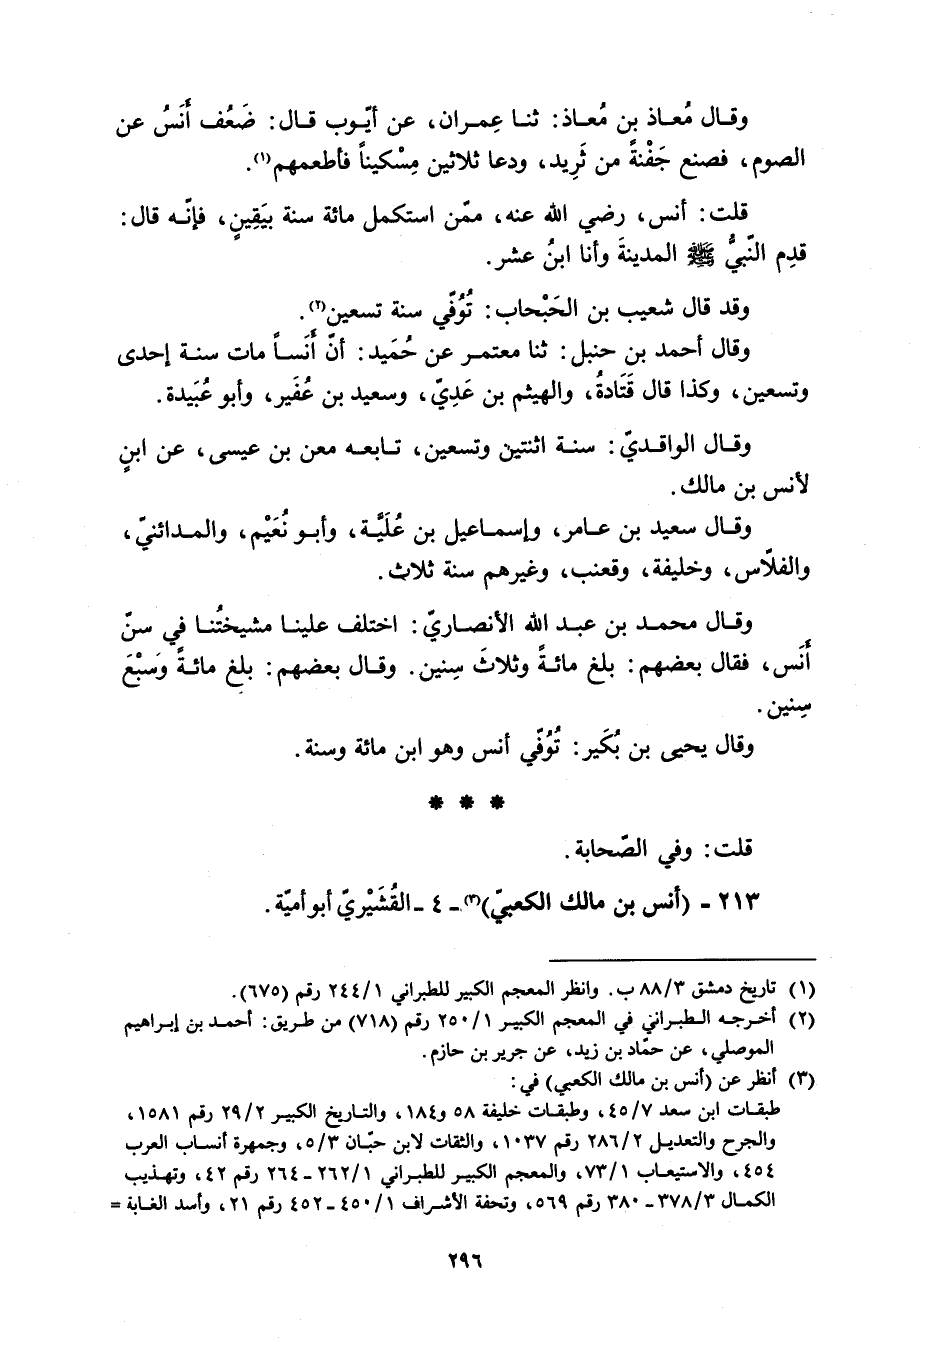 وقال مُعاذ بن مُعاذ: ثنا عِمران، عن أيّوب قال: ضَعُف أَنَسُ عن
الصوم، فصنع جَفْنةً من ثَرِيد، ودعا ثلاثين مِسْكيناً فأطعمهم(١).
قلت: أنس، رضي الله عنه، ممّن استكمل مائة سنة بيَقِينٍ، فإنّه قال:
قدِم النّبيُّ ﷺ المدينةَ وأنا ابنُ عشر.
وقد قال شعيب بن الحَبْحاب: تُوُفّي سنة تسعين(٢).
وقال أحمد بن حنبل: ثنا معتمر عن حُمَيد: أنّ أَنَساً مات سنة إحدى
وتسعين، وكذا قال قَتَادةُ، والهيثم بن عَدِيّ، وسعيد بن عُفَير، وأبو عُبَيدة.
وقال الواقديّ: سنة اثنتين وتسعين، تابعه معن بن عيسى، عن ابنٍ
لأنس بن مالك.
وقال سعيد بن عامر، وإسماعيل بن عُلَيَّة، وأبو نُعَيْم، والمدائنيّ،
والفلّاس، وخليفة، وقعنب، وغيرهم سنة ثلاث.
وقال محمد بن عبد الله الأنصاريّ: اختلف علينا مشيختُنا في سنّ
أَنَس، فقال بعضهم: بلغ مائةً وثلاثَ سِنين. وقال بعضهم: بلغ مائةً وَسَبْعَ
سِنين.
وقال يحيى بن بُكَير: تُوُفّي أنس وهو ابن مائة وسنة.
* * *
قلت: وفي الصّحابة.
٢١٣ - (أنس بن مالك الكعبيّ)(٣) - ٤ - القُشَيْريّ أبو أميّة.
(١) تاريخ دمشق ٨٨/٣ ب. وانظر المعجم الكبير للطبراني ٢٤٤/١ رقم (٦٧٥).
(٢) أخرجه الطبراني في المعجم الكبير ٢٥٠/١ رقم (٧١٨) من طريق: أحمد بن إبراهيم
الموصلي، عن حمّاد بن زيد، عن جرير بن حازم.
(٣) أنظر عن (أنس بن مالك الكعبي) في:
طبقات ابن سعد ٤٥/٧، وطبقات خليفة ٥٨ و١٨٤، والتاريخ الكبير ٢٩/٢ رقم ١٥٨١،
والجرح والتعديل ٢٨٦/٢ رقم ١٠٣٧، والثقات لابن حبّان ٥/٣، وجمهرة أنساب العرب
٤٥٤، والاستيعاب ٧٣/١، والمعجم الكبير للطبراني ٢٦٢/١ - ٢٦٤ رقم ٤٢، وتهذيب
الكمال ٣٧٨/٣ - ٣٨٠ رقم ٥٦٩، وتحفة الأشراف ٤٥٠/١ - ٤٥٢ رقم ٢١، وأسد الغابة =
٢٩٦